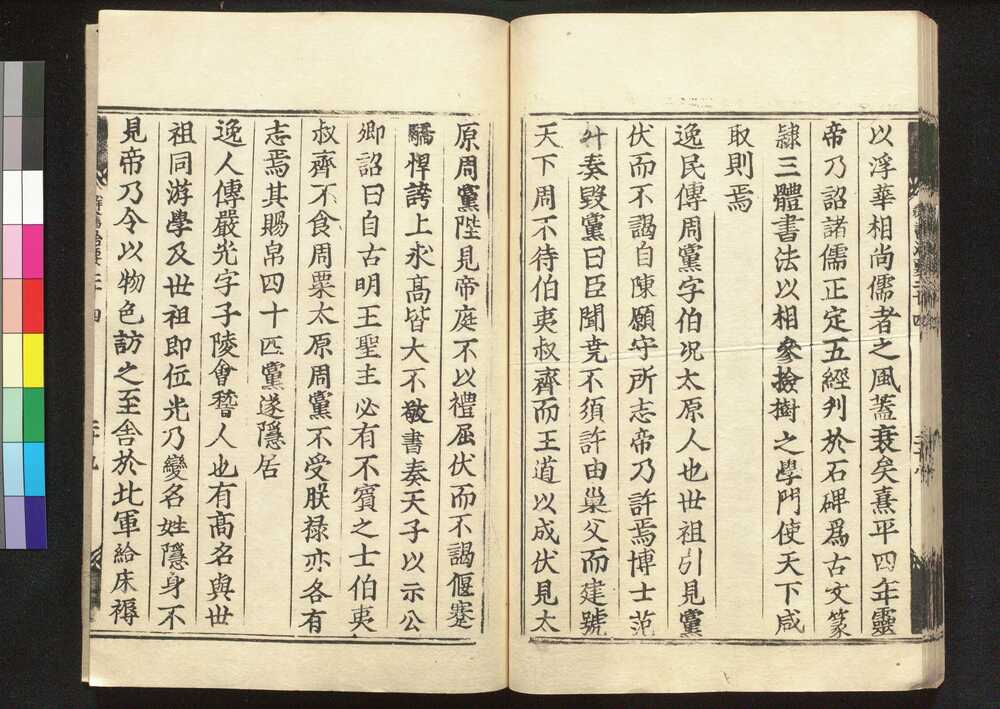 以浮華相尚儒者之風蓋衰矣熹平四年靈
帝乃詔諸儒正定五經刋於石碑爲古文篆
隷三體書法以相叅撿樹之學門使天下咸
取則焉
逸民傳周黨字伯况太原人也世祖引見黨
伏而不謁自陳願守所志帝乃許焉博士范
升奏毀黨曰臣聞堯不須許由巢父而建號
天下周不待伯夷叔齊而王道以成伏見太
原周黨陛見帝庭不以禮屈伏而不謁偃蹇
驕悍誇上求高皆大不敬書奏天子以示公
卿詔曰自古明王聖主必有不賓之士伯夷
叔齊不食周粟太原周黨不受朕禄亦各有
志焉其賜帛四十匹黨遂隱居
逸人傳嚴光字子陵會稽人也有高名與世
祖同游學及世祖即位光乃變名姓隱身不
見帝乃令以物色訪之至舍於北軍給床褥